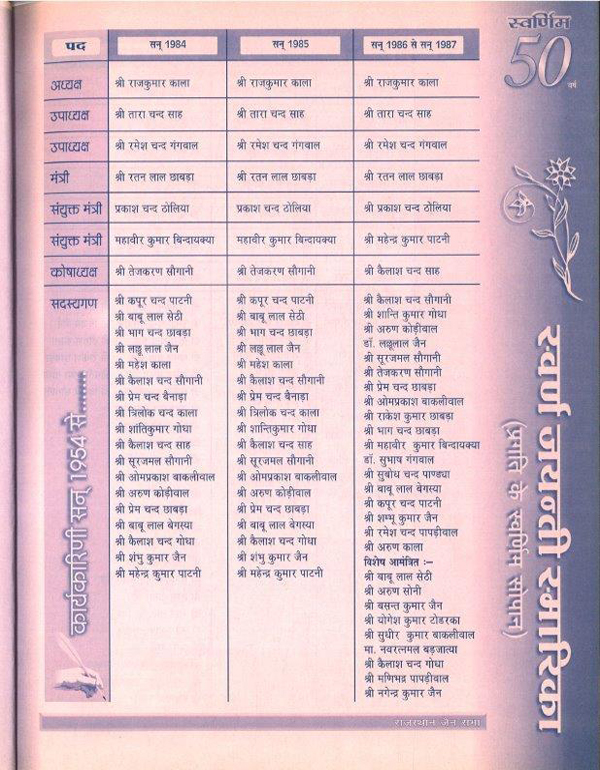 स्वर्णिम
50 वर्ष
पद सन् 1984 सन् 1985 सन् 1986 से सन् 1987
अध्यक्ष श्री राजकुमार काला श्री राजकुमार काला श्री राजकुमार काला
उपाध्यक्ष श्री तारा चन्द साह श्री तारा चन्द साह श्री तारा चन्द साह
उपाध्यक्ष श्री रमेश चन्द गंगवाल श्री रमेश चन्द गंगवाल श्री रमेश चन्द गंगवाल
मंत्री श्री रतन लाल छाबड़ा श्री रतन लाल छाबड़ा श्री रतन लाल छाबड़ा
संयुक्त मंत्री प्रकाश चन्द ठोलिया प्रकाश चन्द ठोलिया श्री प्रकाश चन्द ठोलिया
संयुक्त मंत्री महावीर कुमार बिन्दायक्या महावीर कुमार बिन्दायक्या श्री महेन्द्र कुमार पाटनी
कोषाध्यक्ष श्री तेजकरण सौगानी श्री तेजकरण सौगानी श्री कैलाश चन्द साह
सदस्यगण
श्री कपूर चन्द पाटनी
श्री बाबू लाल सेठी
श्री भाग चन्द छाबड़ा
श्री लल्लू लाल जैन
श्री महेश काला
श्री कैलाश चन्द सौगानी
श्री प्रेम चन्द बैनाड़ा
श्री त्रिलोक चन्द काला
श्री शांतिकुमार गोधा
श्री कैलाश चन्द साह
श्री सूरजमल सौगानी
श्री ओमप्रकाश बाकलीवाल
श्री अरुण कोड़ीवाल
श्री प्रेम चन्द छाबड़ा
श्री बाबू लाल बेगस्या
श्री कैलाश चन्द गोधा
श्री शंभु कुमार जैन
श्री महेन्द्र कुमार पाटनी
श्री कपूर चन्द पाटनी
श्री बाबू लाल सेठी
श्री भाग चन्द छाबड़ा
श्री लल्लू लाल जैन
श्री महेश काला
श्री कैलाश चन्द सौगानी
श्री प्रेम चन्द बैनाड़ा
श्री त्रिलोक चन्द काला
श्री शान्तिकुमार गोधा
श्री कैलाश चन्द साह
श्री सूरजमल सौगानी
श्री ओमप्रकाश बाकलीवाल
श्री अरुण कोड़ीवाल
श्री प्रेम चन्द छाबड़ा
श्री बाबू लाल बेगस्या
श्री कैलाश चन्द गोधा
श्री शंभु कुमार जैन
श्री महेन्द्र कुमार पाटनी
श्री कैलाश चन्द सौगानी
श्री शान्ति कुमार गोधा
श्री अरुण कोड़ीवाल
डॉ. लल्लूलाल जैन
श्री सूरजमल सौगानी
श्री तेजकरण सौगानी
श्री प्रेम चन्द छाबड़ा
श्री ओमप्रकाश बाकलीवाल
श्री राकेश कुमार छाबड़ा
श्री भाग चन्द छाबड़ा
श्री महावीर कुमार बिन्दायक्या
डॉ. सुभाष गंगवाल
श्री सुबोध चन्द पाण्ड्या
श्री बाबू लाल बेगस्या
श्री कपूर चन्द पाटनी
श्री शम्भू कुमार जैन
श्री रमेश चन्द पापड़ीवाल
श्री अरुण काला
विशेष आमंत्रित :–
श्री बाबू लाल सेठी
श्री अरुण सोनी
श्री बसन्त कुमार जैन
श्री योगेश कुमार टोडरका
श्री सुधीर कुमार बाकलीवाल
मा. नवरत्नमल बड़जात्या
श्री कैलाश चन्द गोधा
श्री मणिभद्र पापड़ीवाल
श्री नगेन्द्र कुमार जैन
कार्यकारिणी सन् 1954 से.......
स्वर्ण जयन्ती स्मारिका
(प्रगति के स्वर्णिम सोपान)
राजस्थान जैन सभा